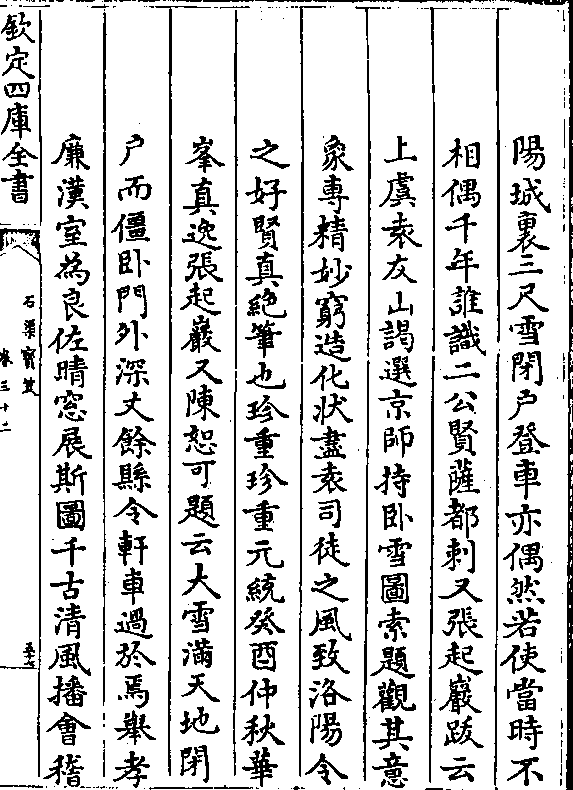 陽城裏三尺雪閉戸登車亦偶然若使當時不
相偶千年誰識二公賢薩都剌又張起巖跋云
上虞袁友山謁選京師持卧雪圖索題觀其意
象專精妙窮造化狀盡袁司徒之風致洛陽令
之好賢真絶筆也珍重珍重元統癸酉仲秋華
峯真逸張起巖又陳恕可題云大雪滿天地閉
户而僵卧門外深丈餘縣令軒車過於焉舉孝
廉漢室為良佐晴窓展斯圖千古清風播會稽
欽定四庫全書
石渠寶笈
卷三十二